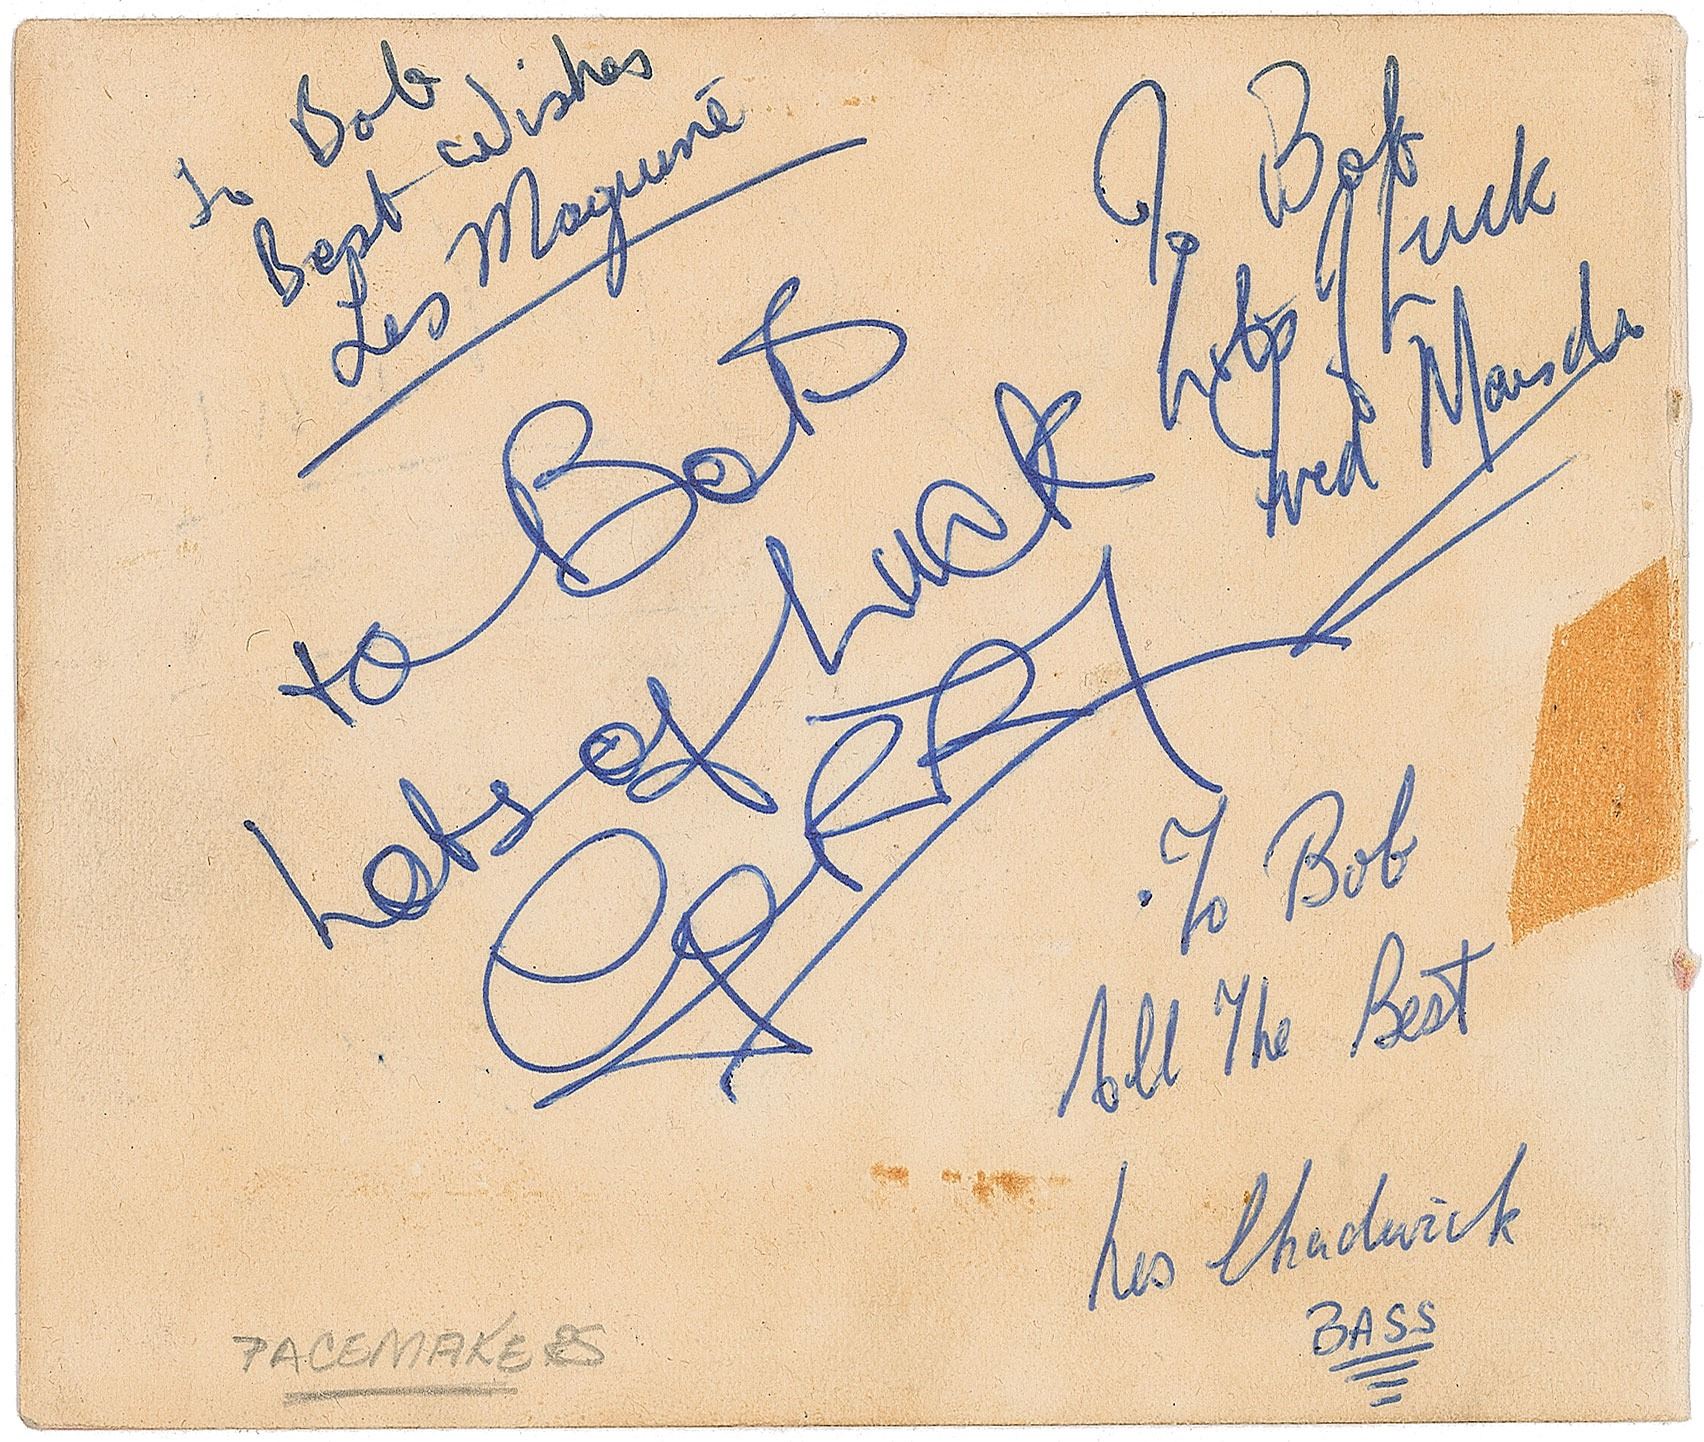 To Bob
Best Wishes
Les Maguire
To Bob
Lots of Luck
Fred Marsden
to Bob
Lots of Luck
GERRY
To Bob
All The Best
Les Chadwick
BASS
PACEMAKERS